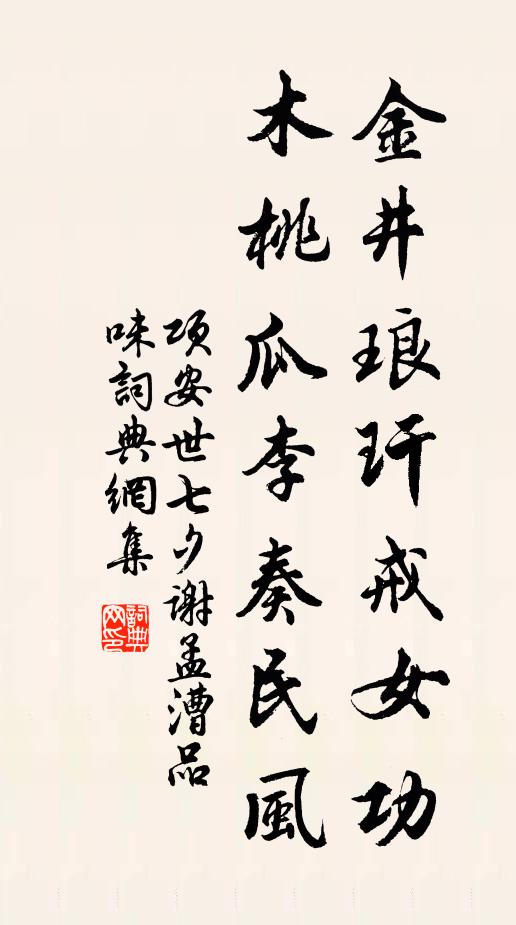 金井琅玕戒女功
木桃瓜李奏民風
項安世七夕謝孟漕品
味詞典網集
詞典網印